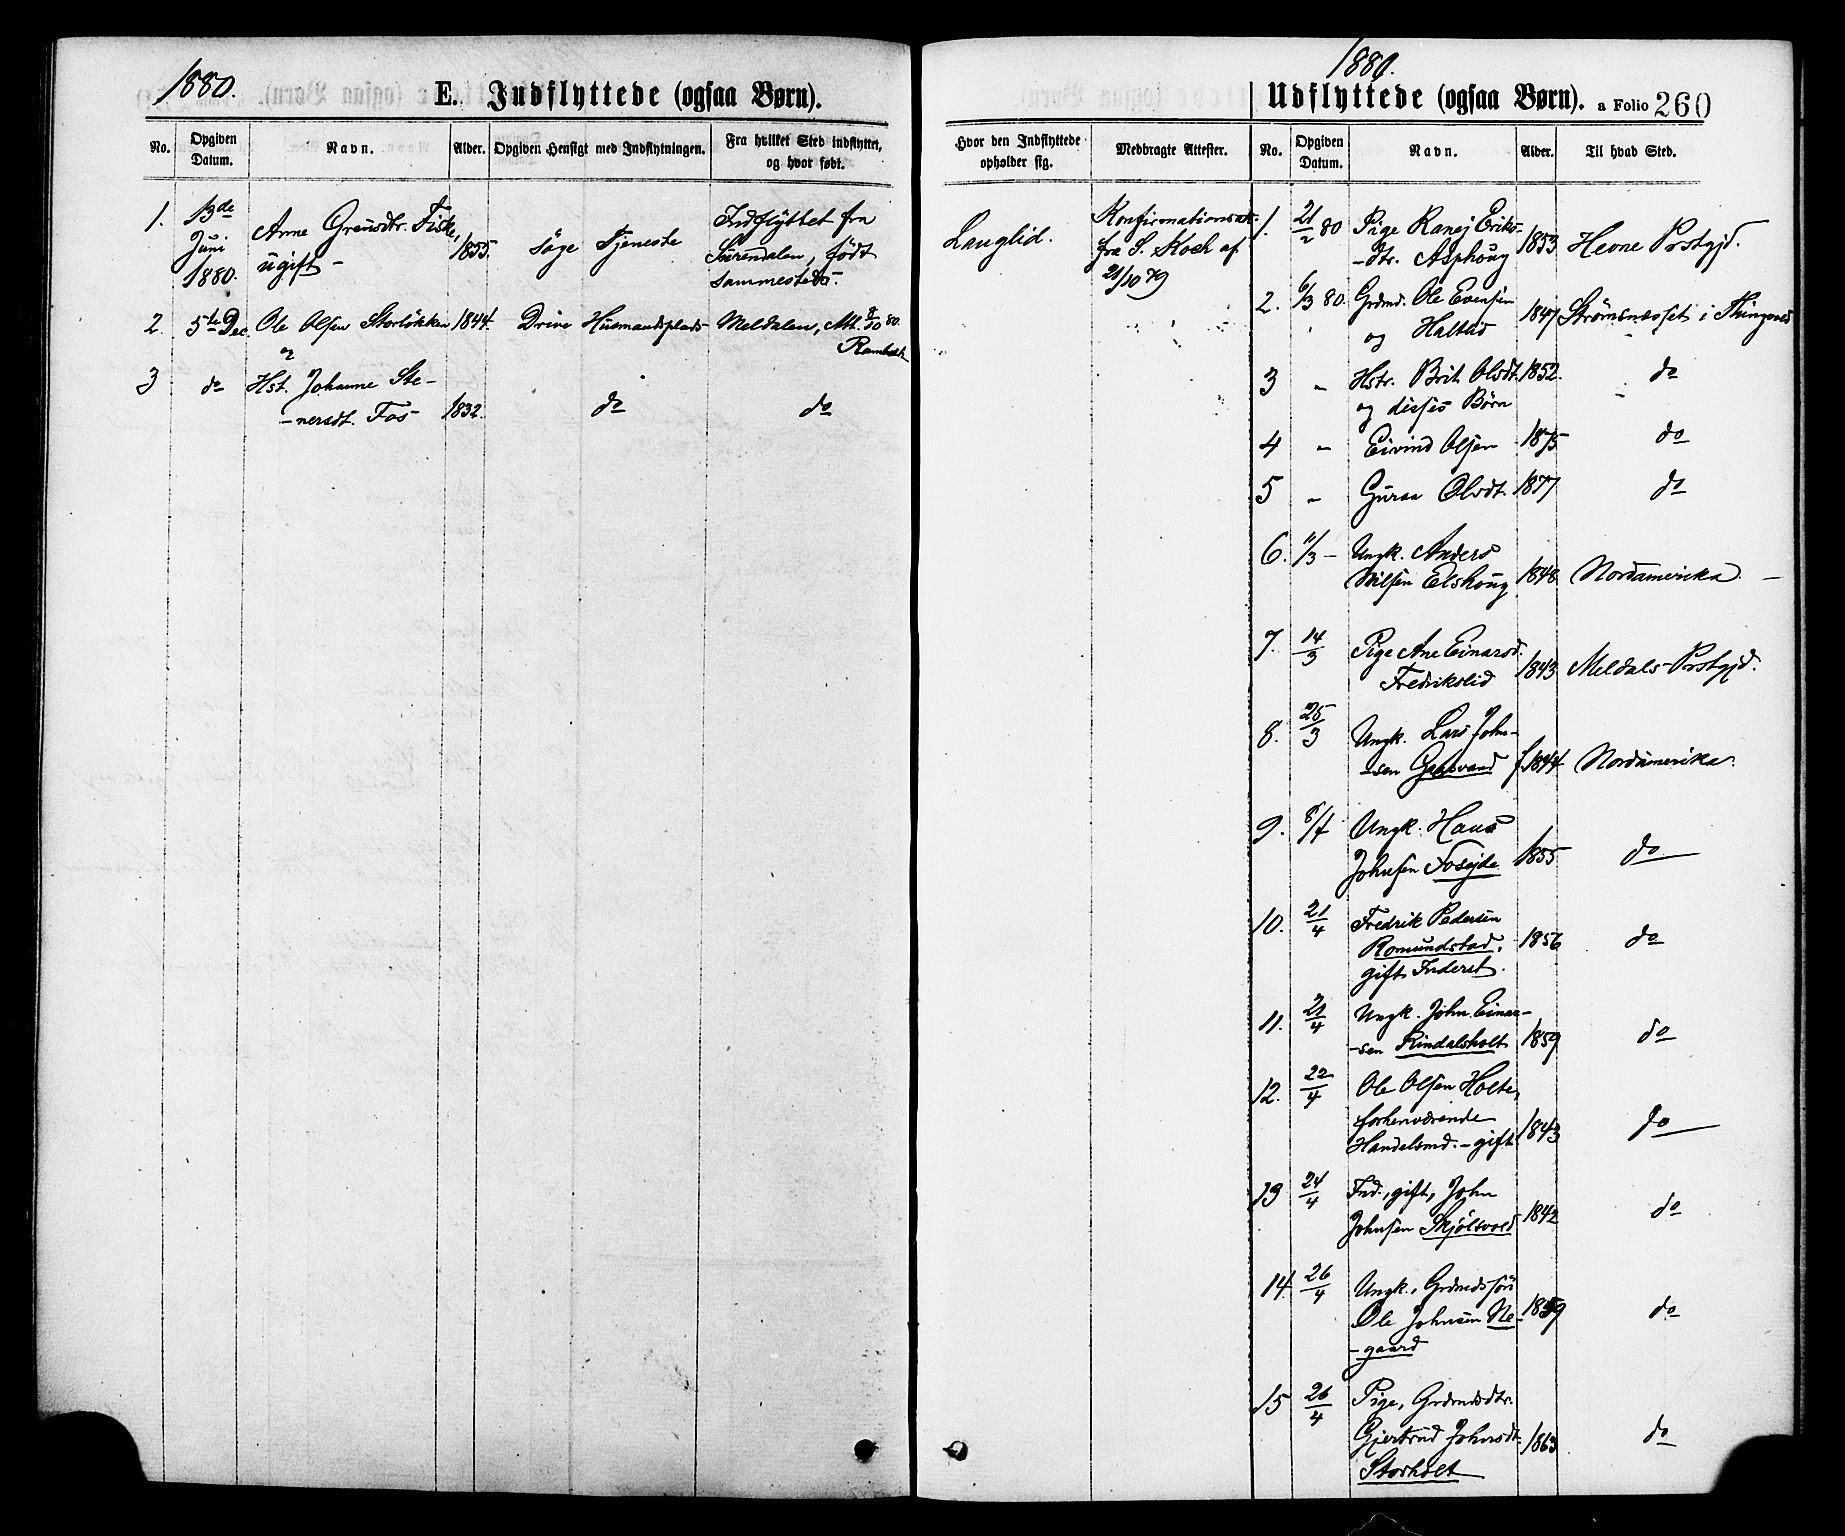 1880.
E. Indflyttede (ogsaa Børn).
No.
Opgiven Datum.
Navn.
Alder.
Opgiven Hensigt med Indflytningen.
Fra hvilket Sted indflyttet, og hvor født.
1. 13de Juni 1880. Anne Grensdtr. Fiske, ugift – 1855. Søge Tjeneste Indflyttet fra Surendalen, født sammesteds.
2. 5te Dec. Ole Olsen Storløkken 1844. Drive Husmandsplads Meldalen, Att. 8/10 80.
og
3 do Hst. Johanne Ste-
-nersdt. Fos 1832. do do
1880.
Udflyttede (ogsaa Børn). a Folio 260
Hvor den Indflyttede opholder sig.
Medbragte Attester.
No.
Opgiven Datum.
Navn.
Alder.
Til hvad Sted.
Langlid.
Konfirmationsatt.
fra S. Koch af
21/10 79
1. 21/2 80 Pige Ranej Eriks-
-dtr. Asphoug 1853 Hevne Prstgjd.
2. 6/3 80. Grdmd. Ole Evensen
og Halsas 1847 Strømsnæsset i Thingvold
3 " Hstr. Brit Olsdt. 1852. do
og disses Børn
4 " Eivind Olsen 1875 do
5 " Guraa Olsdt. 1877 do
6. 11/3 – Ungk. Anders
Nilsen Elshoug 1848 Nordamerika. –
7 14/3 Pige Ane Einarsd.
Fredrikslid 1843 Meldals Prstgjd.
8. 25/3 Ungk. Lars John-
-sen Gaasvand f. 1844. Nordamerika.
9. 8/4 Ungk. Hans
Johnsen Fosejde 1855 do
10. 21/4 Fredrik Pedersen
Romundstad, 1856 do
gift Inderst.
11. 21/4 Ungk. John Einar-
-sen Rindalsholt 1859 do
12. 22/4 Ole Olsen Holte,
forhenværende
Handelsmd. – gift 1843 do
13 24/4 Ind., gift, John
Johnsen Skjølsvold 1842 do
14. 26/4 Ungk., Grdmdssøn
Ole Johnsen Ne- 1859 do
-gaard
15 26/4 Pige, Grdmdsdtr.
Gjertrud Johnsdt. 1863 do
Storholt